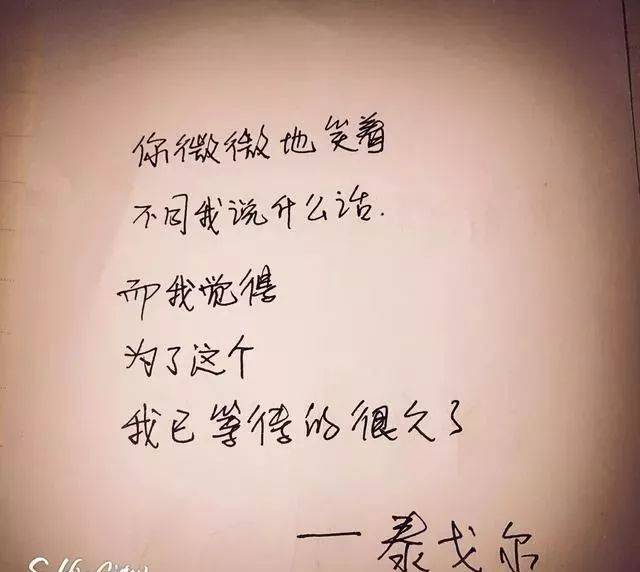 你微微地笑着
不同我说什么话.
而我觉得
为了这个
我已等待的很久了
——泰戈尔